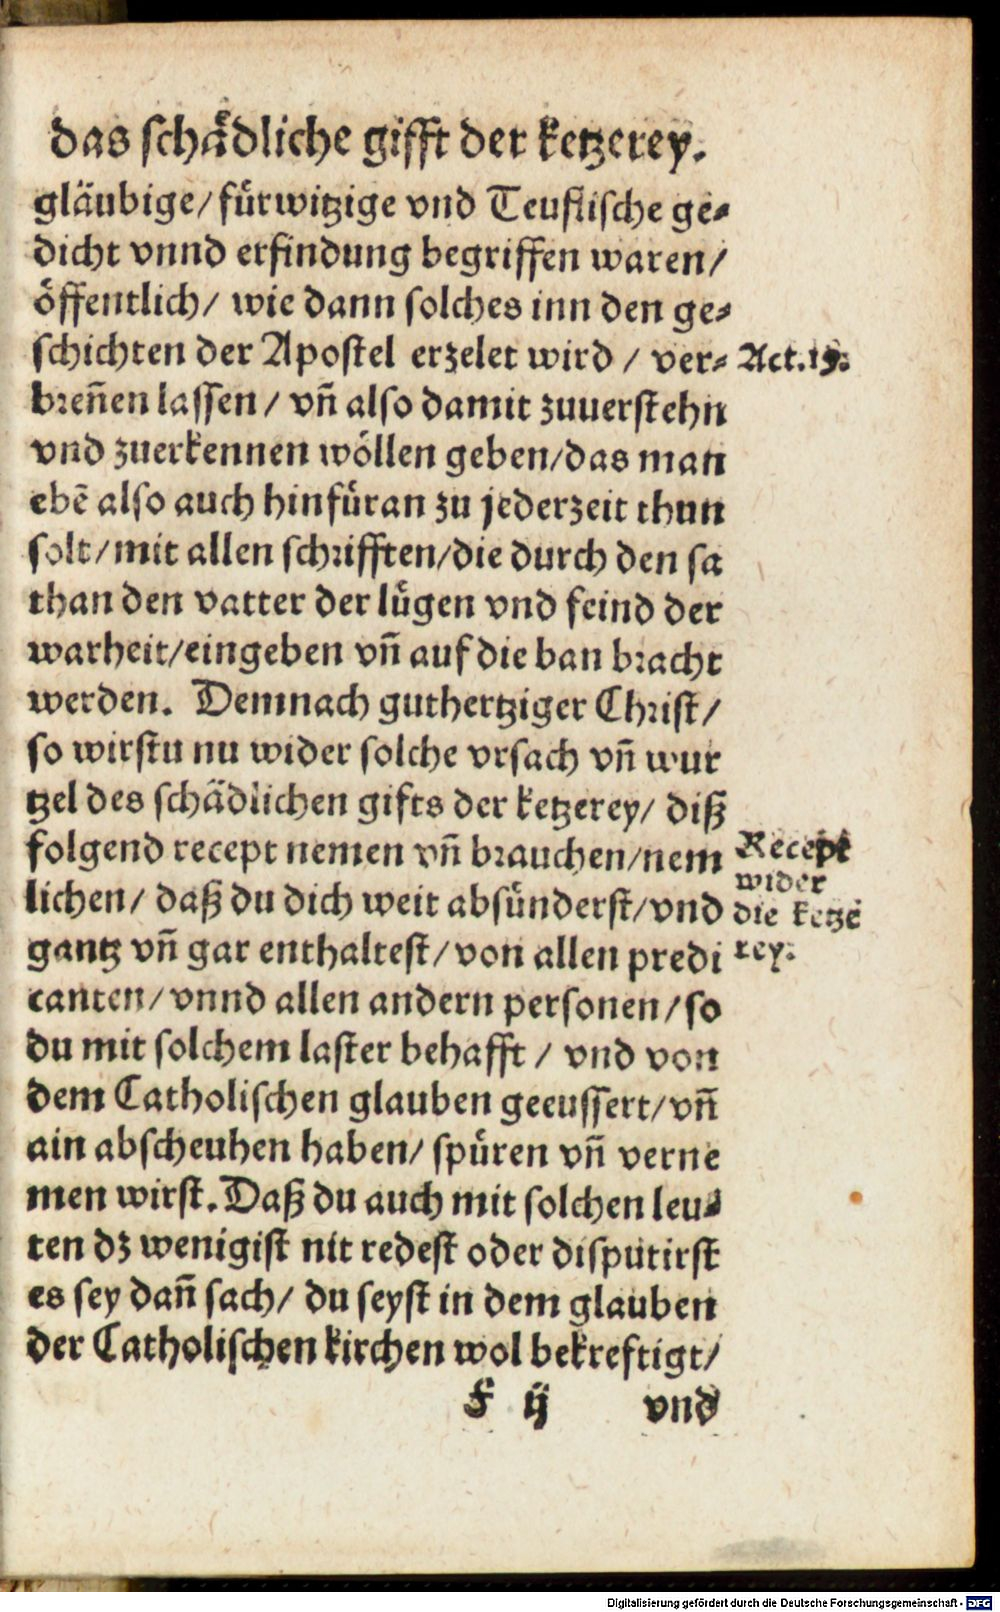 das schädliche gifft der ketzerey.
gläubige/ fürwitzige vnd Teuflische ge⸗
dicht vnnd erfindung begriffen waren/
öffentlich/ wie dann solches inn den ge⸗
schichten der Apostel erzelet wird / ver⸗
Act. 19.
breñen lassen / vñ also damit zuuerstehn
vnd zuerkennen wöllen geben/das man
ebē also auch hinfüran zu jederzeit thun
solt/mit allen schrifften/die durch den sa
than den vatter der lügen vnd feind der
warheit/eingeben vñ auf die ban bracht
werden. Demnach guthertziger Christ/
so wirstu nu wider solche vrsach vñ wur
tzel des schädlichen gifts der ketzerey/ diß
folgend recept nemen vñ brauchen/nem
lichen/ daß du dich weit absünderst/vnd
gantz vñ gar enthaltest/von allen predi
canten/vnnd allen andern personen/so
Recept
wider
die ketze
rey.
du mit solchem laster behafft / vnd von
dem Catholischen glauben geeussert/vñ
ain abscheuhen haben/ spüren vñ verne
men wirst. Daß du auch mit solchen leu⸗
ten dz wenigist nit redest oder disputirst
es sey dañ sach/ du seyst in dem glauben
der Catholischen kirchen wol bekreftigt/
F ij vnd
Digitalisierung gefördert durch die Deutsche Forschungsgemeinschaft - DFG